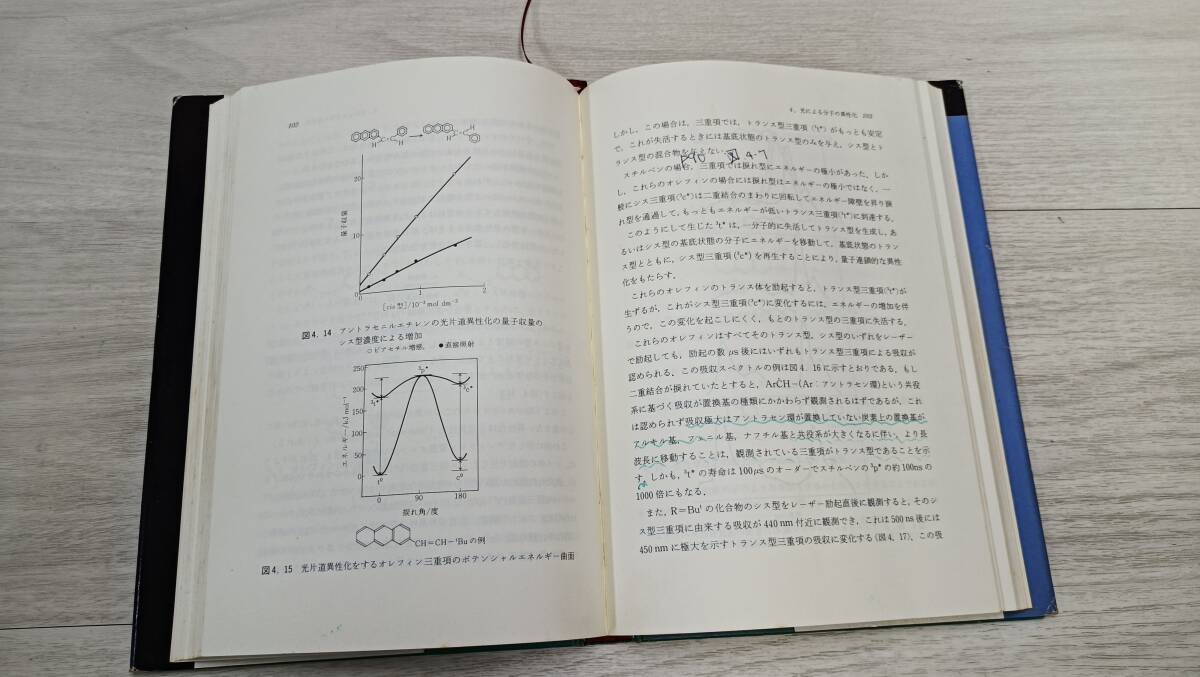 102
量子収量
20
10
0
0
1
2
[cis 型]/10⁻³ mol dm⁻³
図4. 14 アントラセニルエチレンの光片道異性化の量子収量の
シス型濃度による増加
○ビアセチル増感, ●直接照射
エネルギー/kJ mol⁻¹
250
200
150
100
50
0
³t*
³p*
³c*
t⁰
c⁰
0
90
180
捩れ角/度
CH=CH-ᵗBu の例
図4. 15 光片道異性化をするオレフィン三重項のポテンシャルエネルギー曲面
4. 光による分子の異性化 103
しかし,この場合は,三重項では,トランス型三重項(³t*)がもっとも安定
で,これが失活するときには基底状態のトランス型のみを与え,シス型とト
ランス型の混合物を与えない.
図 4-7
スチルベンの場合,三重項では捩れ型にエネルギーの極小があった.しか
し,これらのオレフィンの場合には捩れ型はエネルギーの極小ではなく,一
般にシス三重項(³c*)は二重結合のまわりに回転してエネルギー障壁を昇り捩
れ型を通過して,もっともエネルギーが低いトランス三重項(³t*)に到達する.
このようにして生じた ³t* は,一分子的に失活してトランス型を生成し,あ
るいはシス型の基底状態の分子にエネルギーを移動して,基底状態のトラン
ス型とともに,シス型三重項(³c*)を再生することにより,量子連鎖的な異性
化をもたらす.
これらのオレフィンのトランス体を励起すると,トランス型三重項(³t*)が
生ずるが,これがシス型三重項(³c*)に変化するには,エネルギーの増加を伴
うので,この変化を起こしにくく,もとのトランス型の三重項に失活する.
これらのオレフィンはすべてそのトランス型,シス型のいずれをレーザー
で励起しても,励起の数 μs 後にはいずれもトランス型三重項による吸収が
認められる.この吸収スペクトルの例は図4. 16 に示すとおりである.もし
二重結合が捩れていたとすると,ArĊH-(Ar:アントラセン環)という共役
系に基づく吸収が置換基の種類にかかわらず観測されるはずであるが,これ
は認められず吸収極大はアントラセン環が置換していない炭素上の置換基が
アルキル基,フェニル基,ナフチル基と共役系が大きくなるに伴い,より長
波長に移動することは,観測されている三重項がトランス型であることを示
す.しかも,³t* の寿命は100μsのオーダーでスチルベンの ³p* の約100nsの
1000 倍にもなる.
また,R=Buᵗ の化合物のシス型をレーザー励起直後に観測すると,そのシ
ス型三重項に由来する吸収が 440 nm 付近に観測でき,これは 500 ns 後には
450 nm に極大を示すトランス型三重項の吸収に変化する(図4. 17).この吸